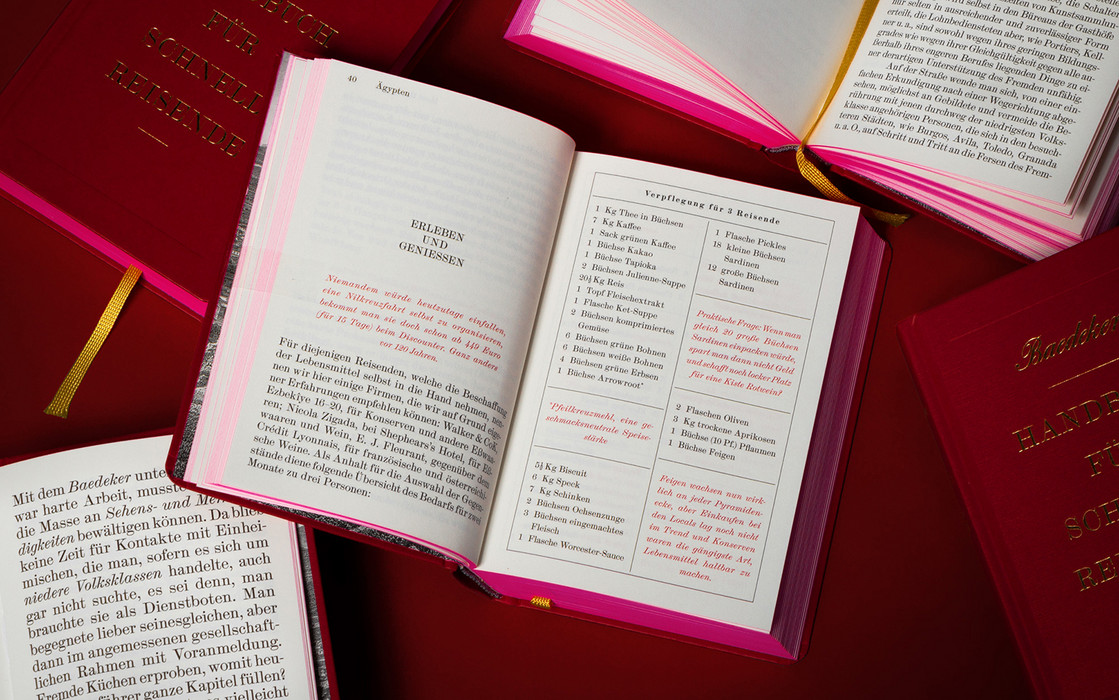 BUCH
FÜR
SCHNELL
REISENDE
40
Ägypten
ERLEBEN
UND
GENIESSEN
Niemandem würde heutzutage einfallen,
eine Nilkreuzfahrt selbst zu organisieren,
bekommt man sie doch schon ab 449 Euro
(für 15 Tage) beim Discounter. Ganz anders
vor 120 Jahren.
Für diejenigen Reisenden, welche die Beschaffung
der Lebensmittel selbst in die Hand nehmen, nen-
nen wir hier einige Firmen, die wir auf Grund eige-
ner Erfahrungen empfehlen können: Walker & Cok,
Ezbekiye 16-20, für Konserven und andere Eßwa-
waaren; Nicola Zigada, bei Shephears's Hotel, für Eß-
waaren und Wein, E. J. Fleurant, gegenüber dem
Crédit Lyonnais, für französische und österreichi-
sche Weine. Als Anhalt für die Auswahl der Gegen-
stände diene folgende Übersicht des Bedarfs für zwei
Monate zu drei Personen:
Verpflegung für 3 Reisende
1 Kg Thee in Büchsen
7 Kg Kaffee
1 Sack grünen Kaffee
1 Büchse Kakao
1 Büchse Tapioka
2 Büchsen Julienne-Suppe
20½ Kg Reis
1 Topf Fleischextrakt
1 Flasche Ket-Suppe
2 Büchsen komprimiertes
Gemüse
6 Büchsen grüne Bohnen
6 Büchsen weiße Bohnen
4 Büchsen grüne Erbsen
1 Büchse Arrowroot*
*Pfeilkreuzmehl, eine ge-
schmackeneutrale Speise-
stärke
5½ Kg Biscuit
6 Kg Speck
7 Kg Schinken
2 Büchsen Ochsenzunge
3 Büchsen eingemachtes
Fleisch
1 Flasche Worcester-Sauce
1 Flasche Pickles
18 kleine Büchsen
Sardinen
12 große Büchsen
Sardinen
Praktische Frage: Wenn man
gleich 20 große Büchsen
Sardinen einpacken würde,
spart man dann nicht Geld
und schafft noch locker Platz
für eine Kiste Rotwein?
2 Flaschen Oliven
3 Kg trockene Aprikosen
1 Büchse (10 Pf.) Pflaumen
1 Büchse Feigen
Feigen wachsen nun wirk-
lich an jeder Pyramiden-
ecke, aber Einkaufen bei
den Locals lag noch nicht
im Trend und Konserven
waren die gängigste Art,
Lebensmittel haltbar zu
machen.
von Kunstsammlun
selbst in den Büreaus der Gasthöfe
nur selten in ausreichender und zuverlässiger Form
erteilt, die Lohnbediensteten aber, wie Portiers, Kell-
ner u. a., sind sowohl wegen ihres geringen Bildungs-
grades wie wegen ihrer Gleichgültigkeit gegen alle au-
ßerhalb ihres engeren Berufes liegenden Dinge zu ei-
ner derartigen Unterstützung des Fremden unfähig.
Auf der Straße wende man sich, von einer ein-
fachen Erkundigung nach einer Wegerichtung abge-
sehen, möglichst an Gebildete und vermeide die Be-
rührung mit jenen durchweg der niedrigsten Volks-
klasse angehörigen Personen, die sich in den besuch-
teren Städten, wie Burgos, Avila, Toledo, Granada
u. a. O., auf Schritt und Tritt an die Fersen des Frem-
Mit dem Baedeker unte
war harte Arbeit, musste
die Masse an Sehens- und Mer
digkeiten bewältigen können. Da blieb
keine Zeit für Kontakte mit Einhei-
mischen, die man, sofern es sich um
niedere Volksklassen handelte, auch
gar nicht suchte, es sei denn, man
brauchte sie als Dienstboten. Man
begegnete lieber seinesgleichen, aber
dann im angemessenen gesellschaft-
lichen Rahmen mit Voranmeldung.
Fremde Küchen erproben, womit heu-
führer ganze Kapitel füllen?
vielleicht
Baedeker
HANDB
FÜ
SCH
RE